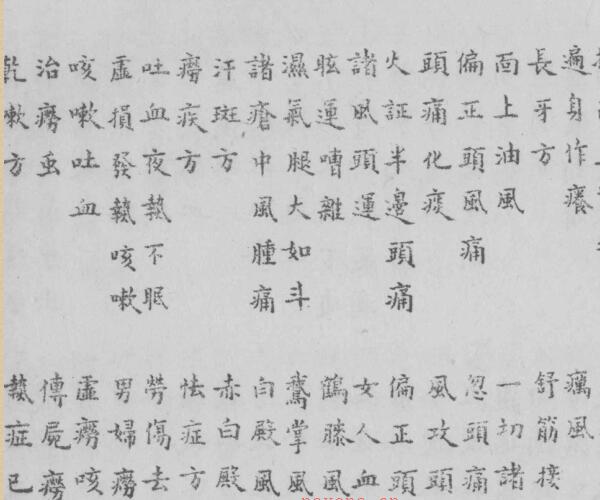 遍身作癢
長牙方
面上油風
偏正頭風痛
頭痛化痰
火証半邊頭痛
諸風頭運
眩運嘈雜
濕氣腿大如斗
諸瘡中風腫痛
汗斑方
癆疾方
吐血夜𤍠不眠
虛損發𤍠咳嗽
咳嗽吐血
治癆虫
乾嗽方
癘風
舒筋接
一切諸
忽頭痛
風攻頭
偏正頭
女人血
鶴膝風
鵞掌風
白殿風
赤白殿
怯症方
勞傷去
男婦癆
虛癆咳
傳屍癆
𤍠症已